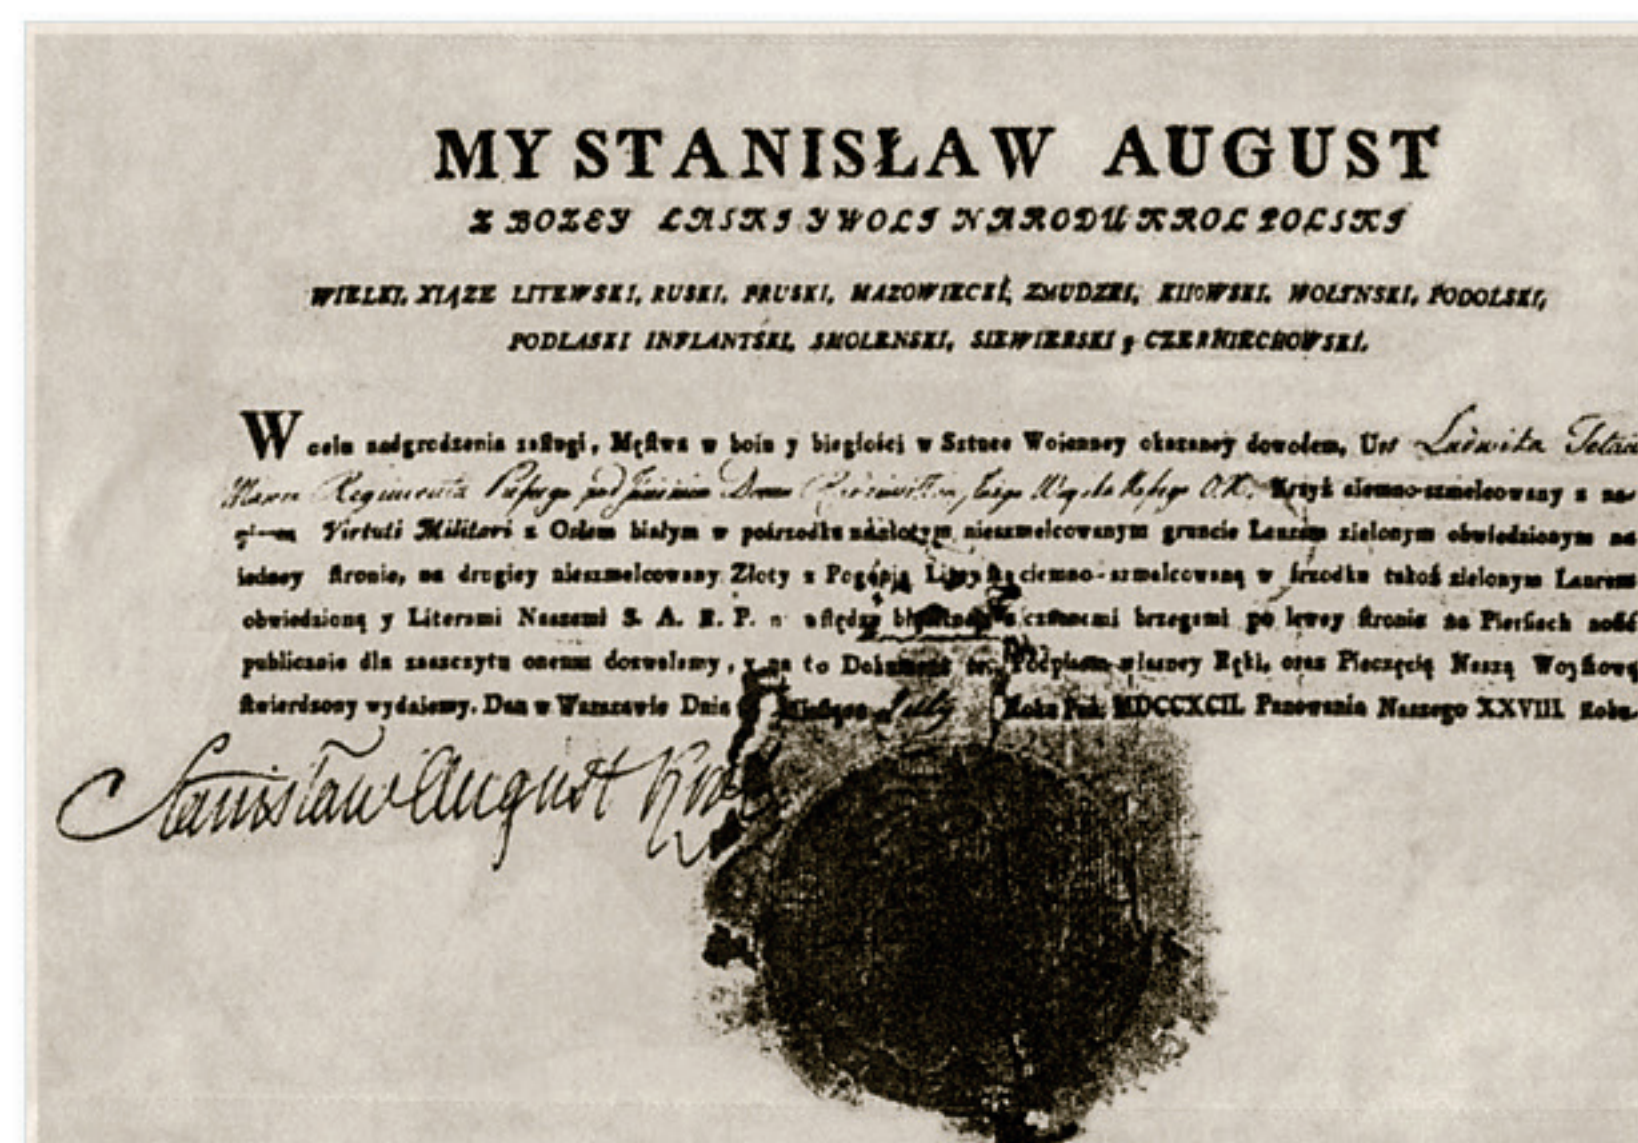 MY STANISŁAW AUGUST
Z BOZEY ŁASKI Y WOLI NARODU KROL POLSKI
WIELKI. XIĄZE LITEWSKI, RUSKI. PRUSKI, MAZOWIECKI, ZMUDZKI, KIIOWSKI. WOŁYNSKI, PODOLSKI,
PODLASKI INFLANTSKI, SMOLENSKI, SIEWIERSKI y CZERNIECHOWSKI.
W celu nadgrodzenia zasługi, Męstwa w boiu y biegłości w Sztuce Woienney okazaney dowodem, Ur Ludwika
Regimentu pod Imieniem Krzyż ciemno-szmelcowany z na-
Virtuti Militari z Orłem białym w pośrzodku nieszmelcowanym gruncie Laurem zielonym obwiedzionym na
iedney stronie, na drugiey nieszmelcowany Złoty z Pogonią ciemno-szmelcowaną w śrzodku takoż zielonym Laurem
obwiedzioną y Literami Naszemi S. A. R. P. brzegami po lewey stronie na Piersiach nosić
publicznie dla zaszczytu onemu dozwalamy, y na to Dokument własney Ręki, oraz Pieczęcią Naszą Woyskową
stwierdzony wydaiemy. Dan w Warszawie Dnia Miesiąca Roku Pań. MDCCXCII. Panowania Naszego XXVIII Roku
Stanisław August Król